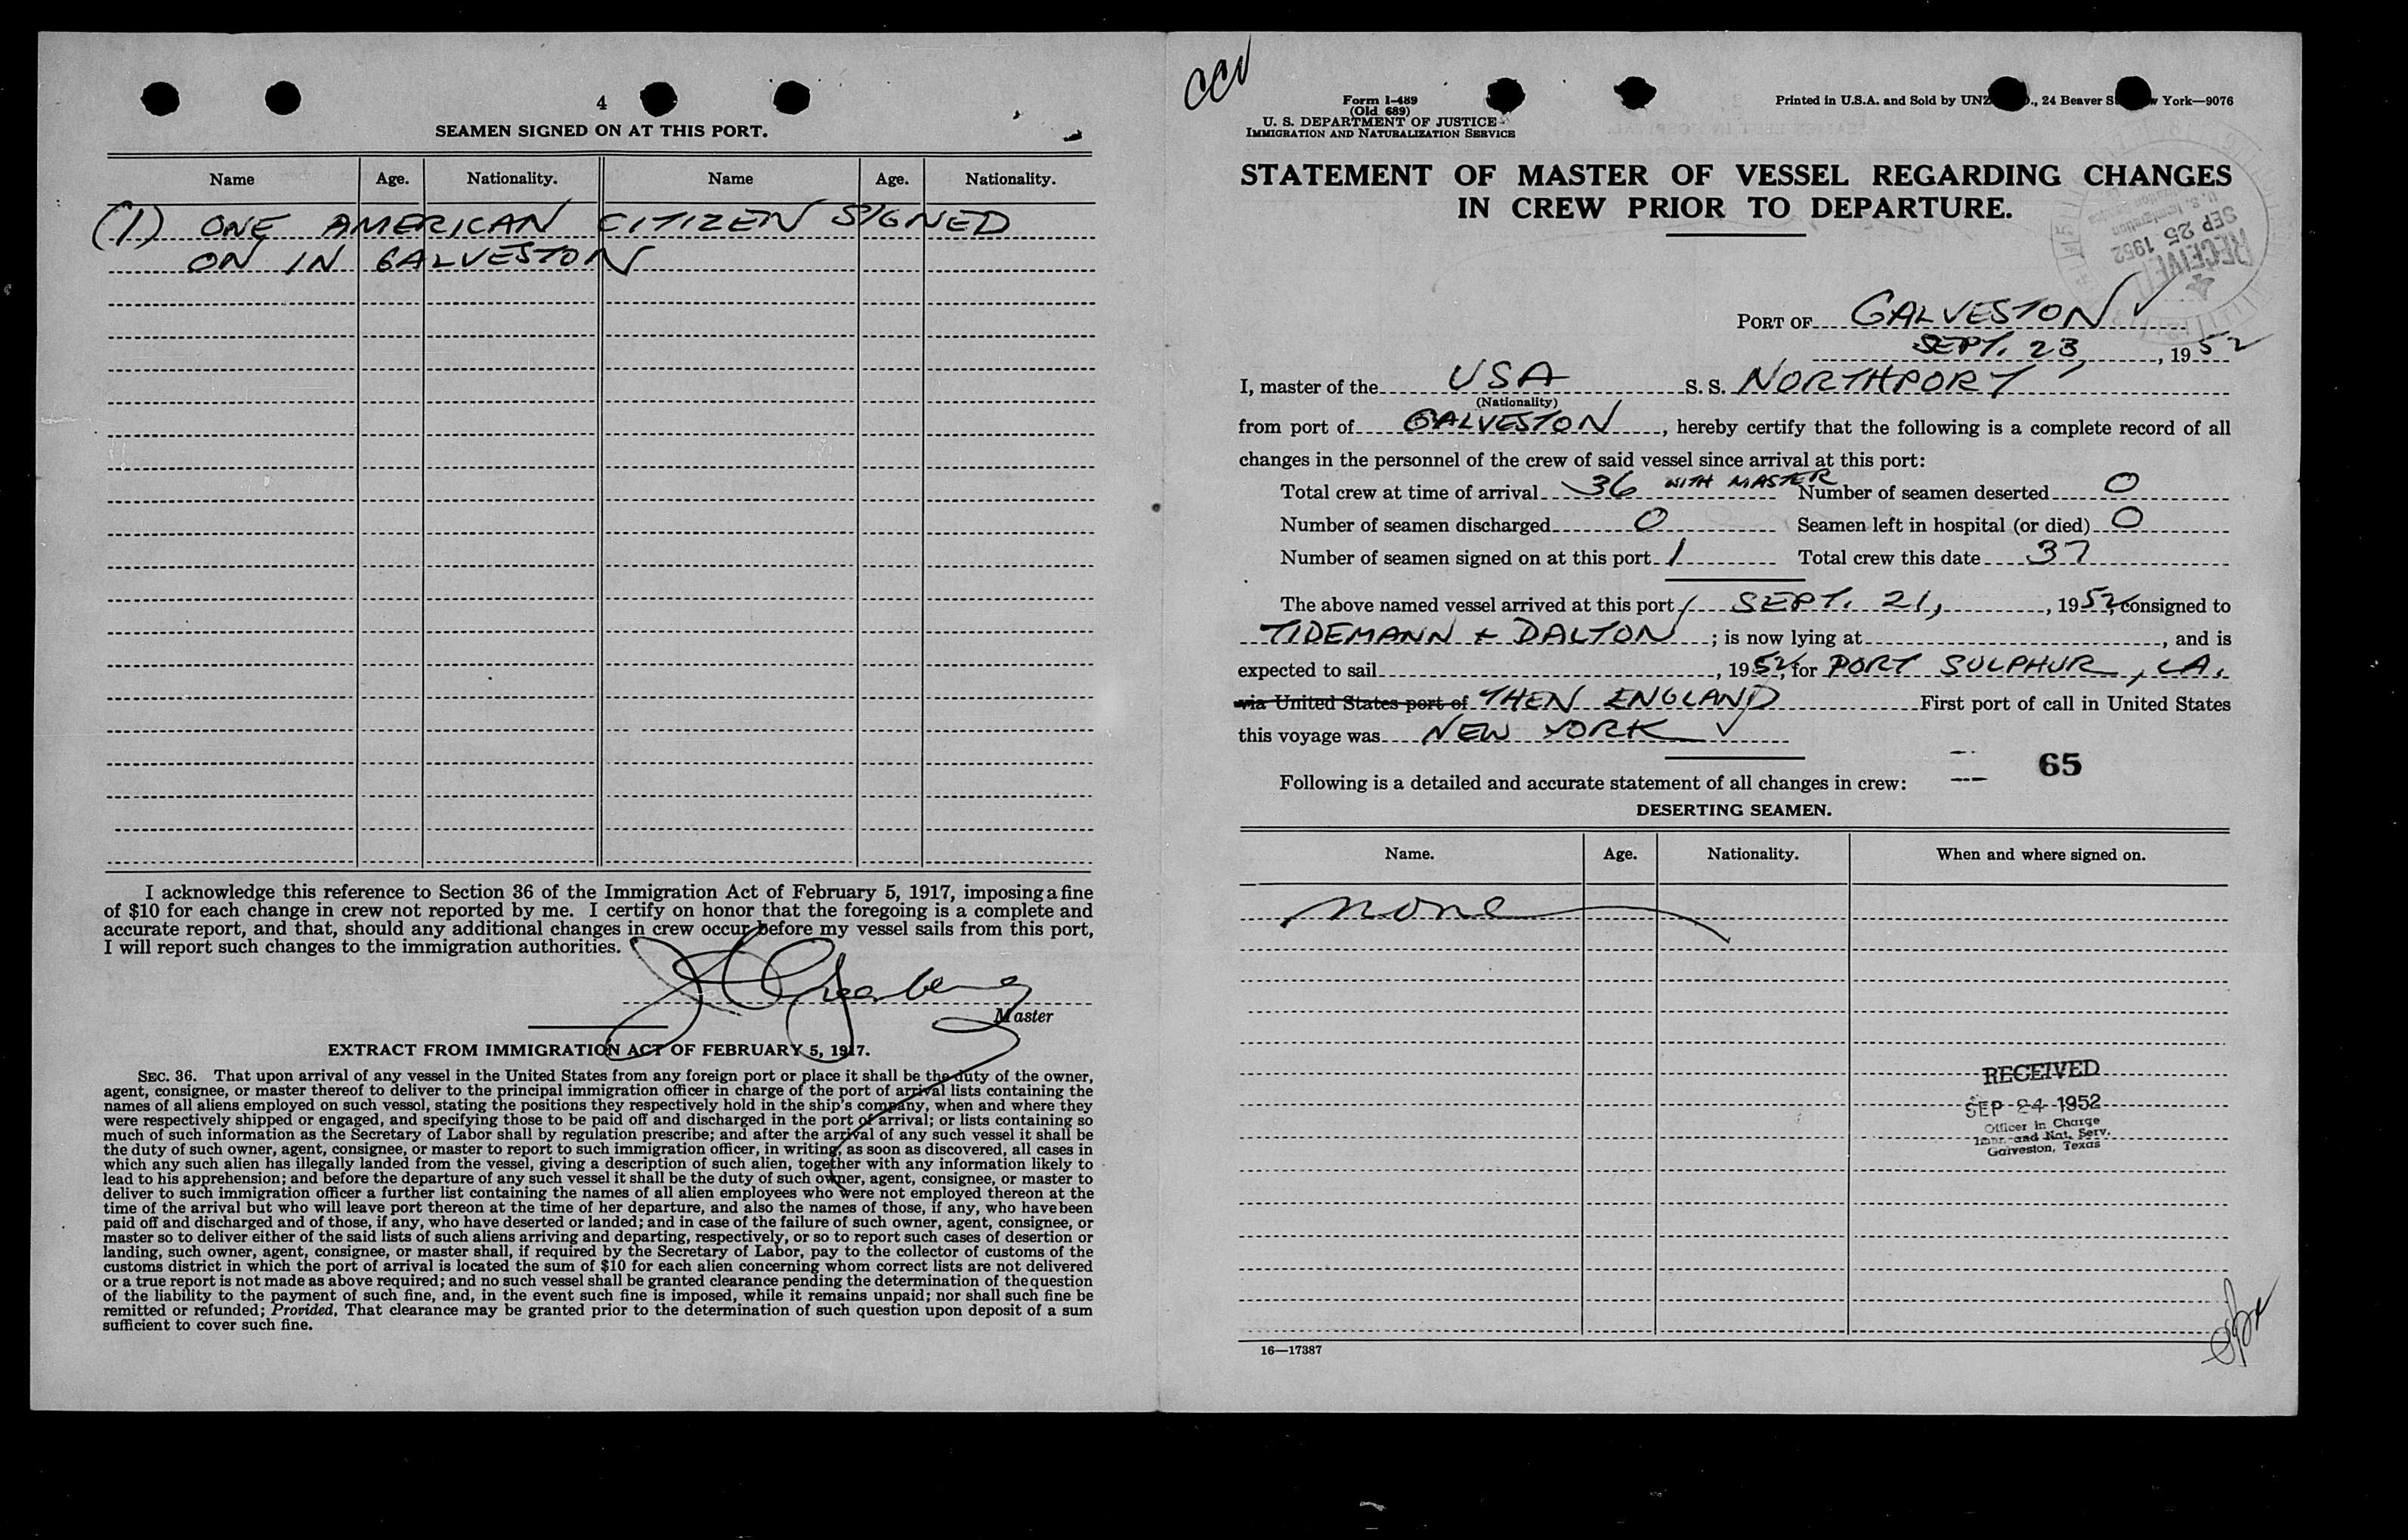 4
SEAMEN SIGNED ON AT THIS PORT.
Name Age. Nationality. Name Age. Nationality.
(1) ONE AMERICAN CITIZEN SIGNED
ON IN GALVESTON
I acknowledge this reference to Section 36 of the Immigration Act of February 5, 1917, imposing a fine
of $10 for each change in crew not reported by me. I certify on honor that the foregoing is a complete and
accurate report, and that, should any additional changes in crew occur before my vessel sails from this port,
I will report such changes to the immigration authorities.
Master
EXTRACT FROM IMMIGRATION ACT OF FEBRUARY 5, 1917.
SEC. 36. That upon arrival of any vessel in the United States from any foreign port or place it shall be the duty of the owner,
agent, consignee, or master thereof to deliver to the principal immigration officer in charge of the port of arrival lists containing the
names of all aliens employed on such vessel, stating the positions they respectively hold in the ship's company, when and where they
were respectively shipped or engaged, and specifying those to be paid off and discharged in the port of arrival; or lists containing so
much of such information as the Secretary of Labor shall by regulation prescribe; and after the arrival of any such vessel it shall be
the duty of such owner, agent, consignee, or master to report to such immigration officer, in writing, as soon as discovered, all cases in
which any such alien has illegally landed from the vessel, giving a description of such alien, together with any information likely to
lead to his apprehension; and before the departure of any such vessel it shall be the duty of such owner, agent, consignee, or master to
deliver to such immigration officer a further list containing the names of all alien employees who were not employed thereon at the
time of the arrival but who will leave port thereon at the time of her departure, and also the names of those, if any, who have been
paid off and discharged and of those, if any, who have deserted or landed; and in case of the failure of such owner, agent, consignee, or
master so to deliver either of the said lists of such aliens arriving and departing, respectively, or so to report such cases of desertion or
landing, such owner, agent, consignee, or master shall, if required by the Secretary of Labor, pay to the collector of customs of the
customs district in which the port of arrival is located the sum of $10 for each alien concerning whom correct lists are not delivered
or a true report is not made as above required; and no such vessel shall be granted clearance pending the determination of the question
of the liability to the payment of such fine, and, in the event such fine is imposed, while it remains unpaid; nor shall such fine be
remitted or refunded; Provided, That clearance may be granted prior to the determination of such question upon deposit of a sum
sufficient to cover such fine.
Form I-489
(Old 689)
U. S. DEPARTMENT OF JUSTICE
IMMIGRATION AND NATURALIZATION SERVICE
Printed in U.S.A. and Sold by UNZ ., 24 Beaver S York—9076
STATEMENT OF MASTER OF VESSEL REGARDING CHANGES
IN CREW PRIOR TO DEPARTURE.
RECEIVED
SEP 25 1952
U. S. Immigration
PORT OF GALVESTON
SEPT. 23, 1952
I, master of the USA S. S. NORTHPORT
(Nationality)
from port of GALVESTON, hereby certify that the following is a complete record of all
changes in the personnel of the crew of said vessel since arrival at this port:
Total crew at time of arrival 36 WITH MASTER Number of seamen deserted 0
Number of seamen discharged 0 Seamen left in hospital (or died) 0
Number of seamen signed on at this port 1 Total crew this date 37
The above named vessel arrived at this port SEPT. 21, , 1952, consigned to
TIDEMANN + DALTON ; is now lying at , and is
expected to sail , 1952, for PORT SULPHUR, LA.
via United States port of THEN ENGLAND First port of call in United States
this voyage was NEW YORK
65
Following is a detailed and accurate statement of all changes in crew:
DESERTING SEAMEN.
Name. Age. Nationality. When and where signed on.
none
RECEIVED
SEP 24 1952
Officer in Charge
Imm. and Nat. Serv.
Galveston, Texas
16—17387